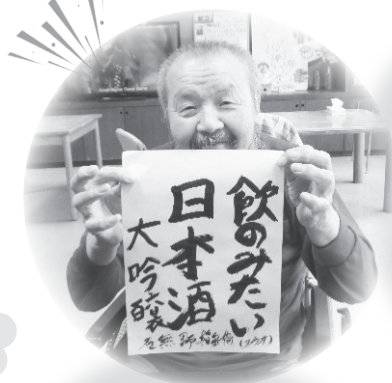 飲のみたい
日本酒
大吟醸